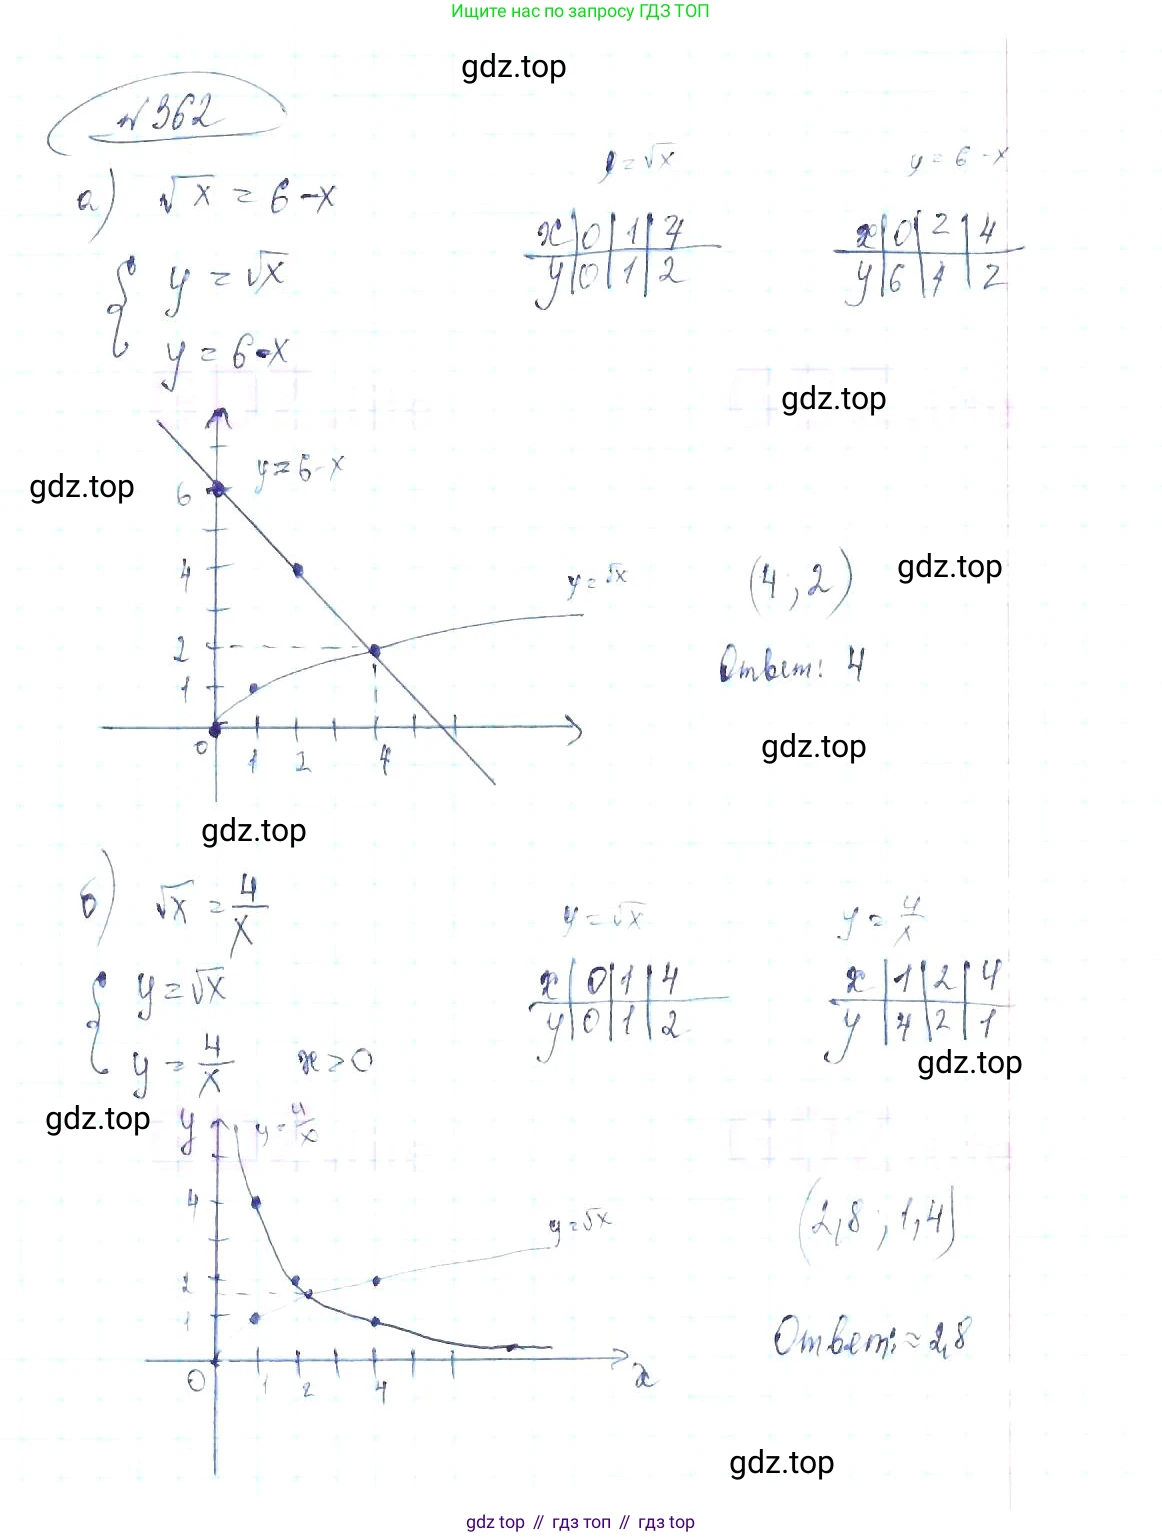 Ищите нас по запросу ГДЗ ТОП
gdz.top
№ 362
а) √x = 6-x
y = √x
y = 6-x
y = √x
x 0 1 4
y 0 1 2
y = 6-x
x 0 2 4
y 6 4 2
gdz.top
gdz.top
y = 6-x
6
4
2
1
0 1 2 4
y = √x
(4; 2)
gdz.top
Ответ: 4
gdz.top
gdz.top
б) √x = 4/x
y = √x
y = 4/x x > 0
y = √x
x 0 1 4
y 0 1 2
y = 4/x
x 1 2 4
y 4 2 1
gdz.top
gdz.top
y
y = 4/x
4
2
1
0 1 2 4 x
y = √x
(2,8; 1,4)
Ответ: ≈ 2,8
gdz.top
gdz top // гдз топ // gdz top